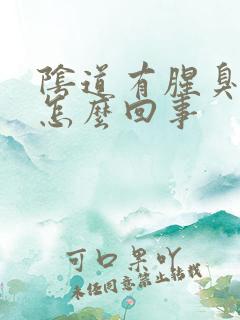 陰道有腥臭
怎麼回事
可口果吖
未经同意禁止转载